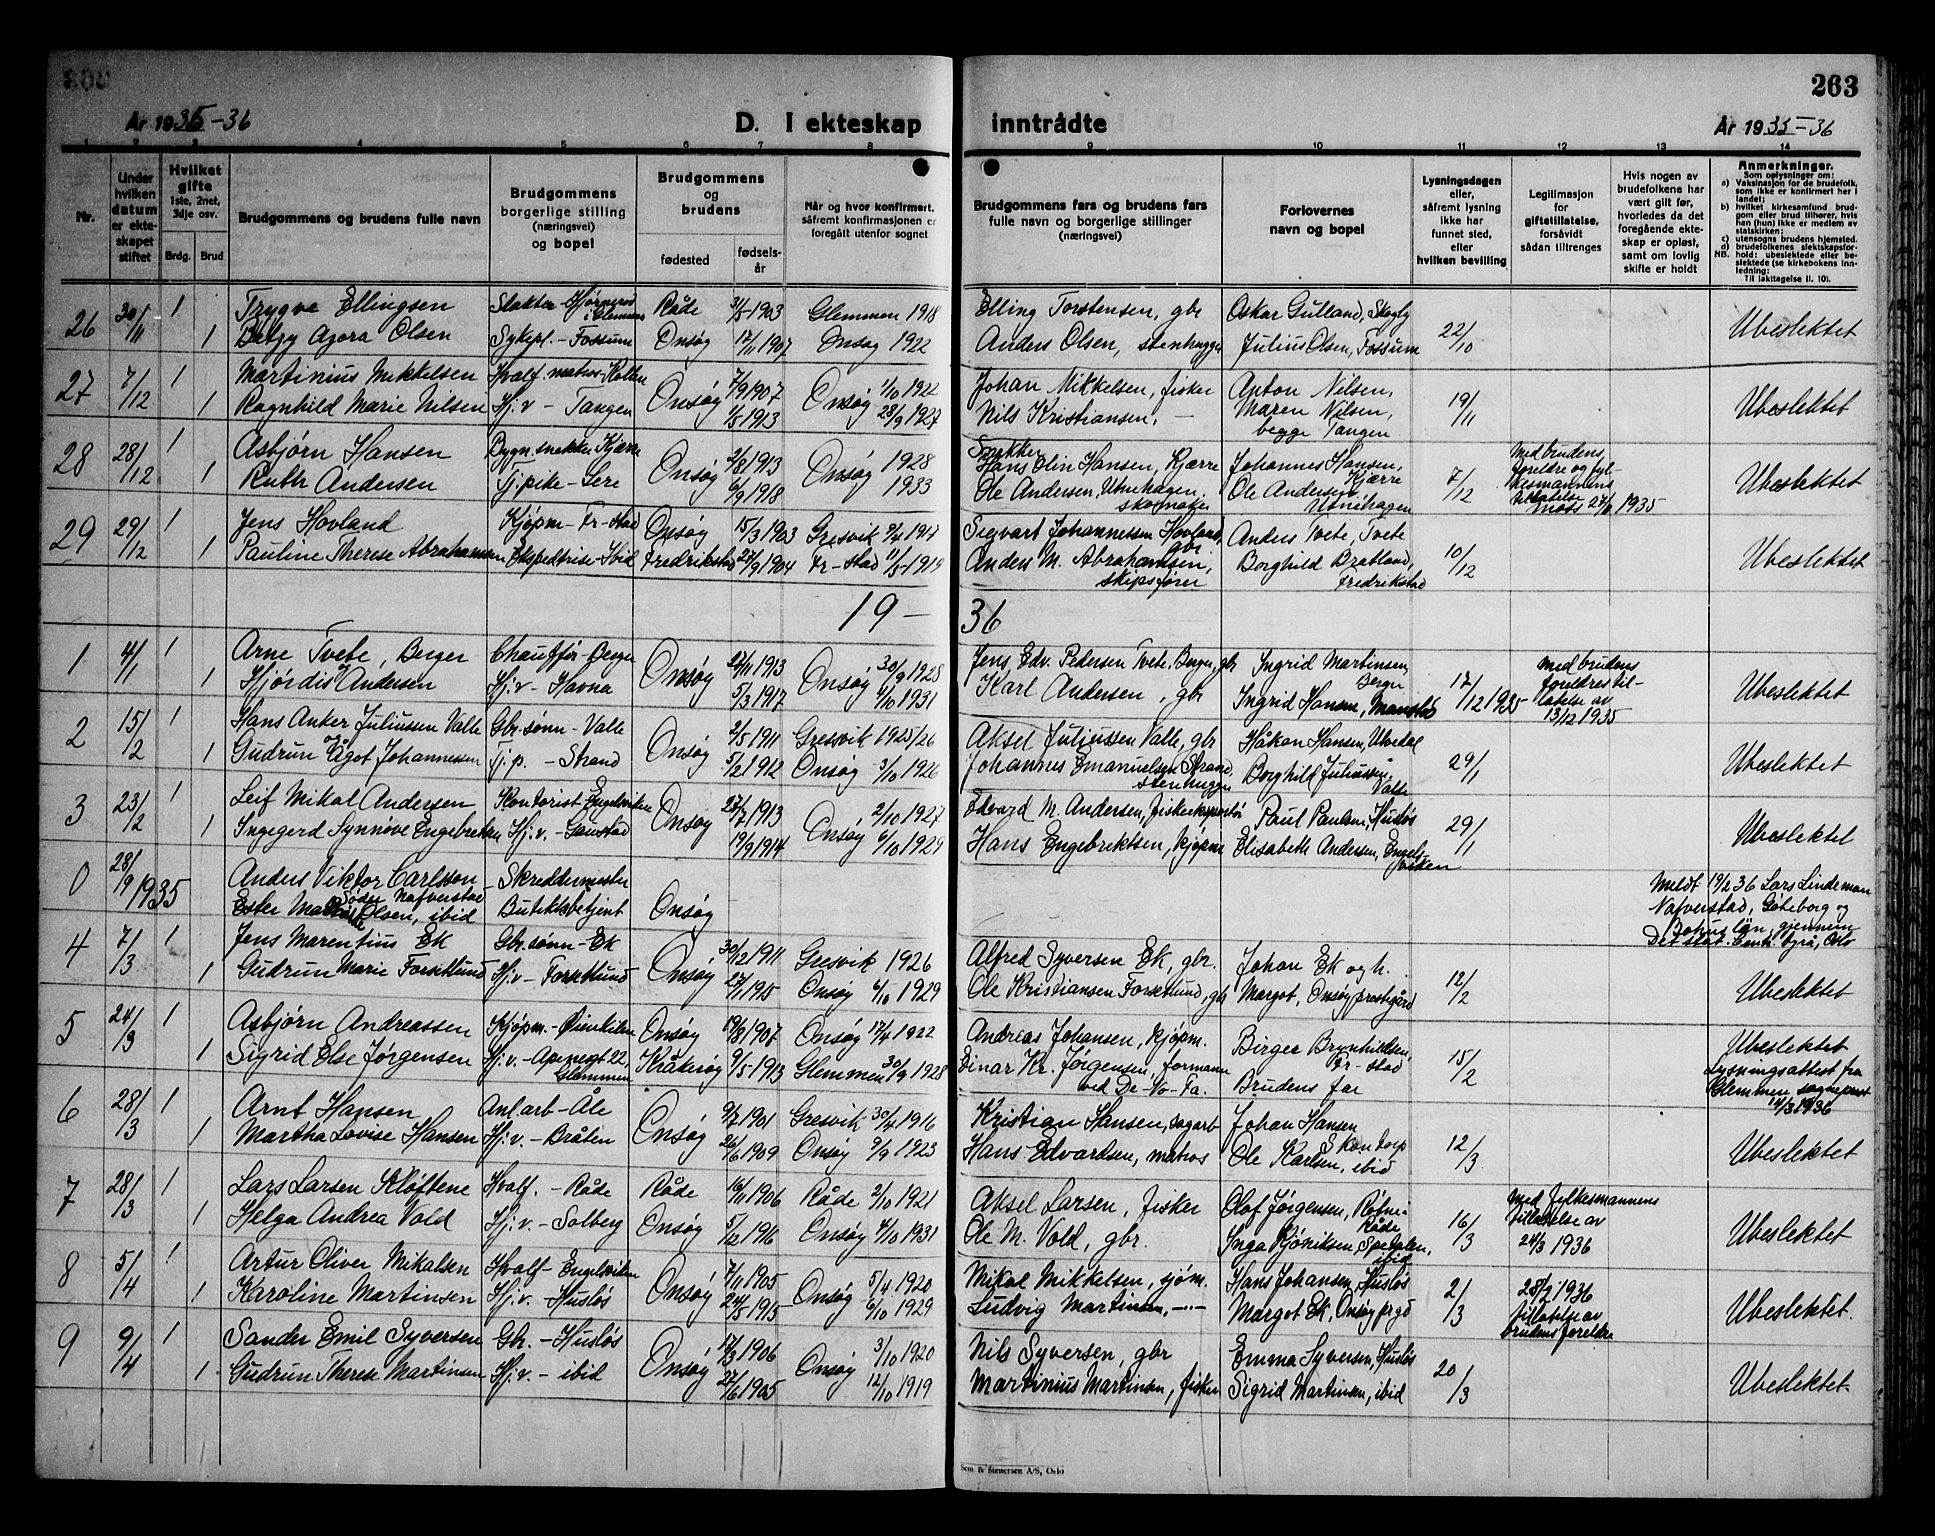 263
År 1935-36
D. I ekteskap inntrådte
År 1935-36
1 2 3 4 5 6 7 8 9 10 11 12 13 14
Nr.
Under hvilken datum er ekteskapet stiftet
Hvilket gifte 1ste, 2net, 3dje osv.
Brdg. Brud
Brudgommens og brudens fulle navn
Brudgommens borgerlige stilling (næringsvei) og bopel
Brudgommens og brudens
fødested
fødselsår
Når og hvor konfirmert, såfremt konfirmasjonen er foregått utenfor sognet
Brudgommens fars og brudens fars fulle navn og borgerlige stillinger (næringsvei)
Forlovernes navn og bopel
Lysningsdagen eller, såfremt lysning ikke har funnet sted, efter hvilken bevilling
Legitimasjon for giftetillatelse, forsåvidt sådan tiltrenges
Hvis nogen av brudefolkene har vært gift før, hvorledes da det foregående ekteskap er opløst, samt om lovlig skifte er holdt
Anmerkninger.
Som oplysninger om:
a) Vaksinasjon for de brudefolk, som ikke er konfirmert her i landet;
b) hvilket kirkesamfund brudgom eller brud tilhører, hvis han (hun) ikke er medlem av statskirken;
c) utensogns brudens hjemsted.
d) brudefolkenes slektskapsforhold: ubeslektede eller beslektede (se kirkebokens innledning;
NB. Til iakttagelse II. 10).
26 30/11 1 Trygve Ellingsen Slakter - Hjørnerød i Glemmen Råde 31/5 1903 Glemmen 1918 Elling Torstensen, gbr Oskar Gulland, Skogly 22/10 Ubeslektet
1 Betzy Agora Olsen Sykepl. - Fossum Onsøy 17/11 1907 Onsøy 1922 Anders Olsen, stenhugger Julius Olsen, Fossum
27 7/12 1 Martinius Mikkelsen Hvalf. matros - Kollen Onsøy 7/9 1907 Onsøy 1/10 1922 Johan Mikkelsen, fisker Anton Nilsen, 19/11 Ubeslektet
1 Ragnhild Marie Nilsen Hj.v - Tangen 1/8 1913 28/9 1927 Nils Kristiansen, — Maren Nilsen, begge Tangen
28 28/12 1 Asbjørn Hansen Bygn.snekker Kjærre Onsøy 2/8 1913 Onsøy 1928 Snekker Hans Elin Hansen, Kjærre Johannes Hansen, Kjærre 7/12 Med brudens foreldre og fylkesmannens tillatelse Ubeslektet
1 Ruth Andersen Tj.pike - Lere 6/9 1918 1933 Ole Andersen, Utnehagen, skomaker Ole Andersen Utnehagen 1935
29 29/12 1 Jens Hovland Kjøpm - Fr-stad Onsøy 15/3 1903 Gresvik 9/4 1917 Sigvart Johannessen Hovland, gbr. Anders Tvete, Tvete 10/12 Ubeslektet
1 Pauline Therese Abrahamsen Ekspeditrise - Ibid Fredrikstad 27/9 1904 Fr-stad 11/5 1919 Anders M. Abrahamsen, skipsfører Borghild Bratland, Fredrikstad
19 - 36
1 4/1 1 Arne Tvete, Berger Chauffør - Berger Onsøy 27/11 1913 Onsøy 30/9 1928 Jens Edv. Pedersen Tvete, Berger, gbr Ingrid Martinsen, Berger 17/12 1935 Med brudens foreldres tillatelse av 13/12 1935 Ubeslektet
1 Hjørdis Andersen Hj.v - Havna 5/3 1917 4/10 1931 Karl Andersen, gbr Ingrid Hansen, Manstad
2 15/2 1 Hans Anker Juliussen Valle Gbr.sønn - Valle Onsøy 2/5 1911 Gresvik 1925/26 Aksel Juliussen Valle, gbr Håkon Hansen, Utvedal 29/1 Ubeslektet
1 Gudrun Ågot Johannessen Tj.p. - Strand 5/2 1912 Onsøy 3/10 1926 Johannes Emanuelsen Strand, stenhugger Borghild Juliussen, Valle
3 23/2 1 Leif Mikal Andersen Kontorist Engelsviken Onsøy 27/7 1913 Onsøy 2/10 1927 Edvard M. Andersen, fiskeeksportør Paul Paulsen, Husløs 29/1 Ubeslektet
1 Ingegerd Synnøve Engebretsen Hj.v. - Gaustad 19/9 1914 6/10 1929 Hans Engebrektsen, kjøpm Elisabeth Andersen, Engelsviken
0 28/9 1935 Anders Viktor Carlsson Søder Nafverstad Skreddermester Meldt 19/2 36 Lars Lindeman Nafverstad, Göteborg og Bohuslän, gjennem Det stat. Cent. byrå, Oslo
Ester Olsen, ibid Butikkbetjent Onsøy
4 7/3 1 Jens Marentius Ek Gbr.sønn - Ek Onsøy 30/12 1911 Gresvik 1926 Alfred Syversen Ek, gbr. Johan Ek og h. 12/2 Ubeslektet
1 Gudrun Marie Forsetlund Hj.v - Forsetlund 27/11 1915 Onsøy 6/10 1929 Ole Kristiansen Forsetlund, gbr Margot, Onsøy prestegård
5 24/3 1 Asbjørn Andreassen Kjøpm. - Øienkilen Onsøy 19/8 1907 Onsøy 17/4 1922 Andreas Johansen, kjøpm. Birger Brynhildsen, Fr-stad 15/2 Ubeslektet
1 Sigrid Else Jørgensen Hj.v. - Apenesgt 22, Glemmen Kråkerøy 9/5 1913 Glemmen 30/9 1928 Einar Kr. Jørgensen, formann ved De-No-Fa. Brudens far Lysningsattest fra Glemmen sogneprest 14/3 1936
6 28/3 1 Arnt Hansen Anl.arb - Åle Onsøy 9/7 1901 Gresvik 30/4 1916 Kristian Hansen, sagarb Johan Hansen Skåntorp 12/3 Ubeslektet
1 Martha Lovise Hansen Hj.v. - Bråten 26/6 1909 Onsøy 9/9 1923 Hans Edvardsen, matros Ole Karlsen, ibid
7 28/3 1 Lars Larsen Kløftene Hvalf. - Råde Råde 16/11 1906 Råde 2/10 1921 Aksel Larsen, fisker Olaf Jørgensen, Råde 16/3 Med fylkesmannens tillatelse av 24/3 1936 Ubeslektet
1 Helga Andrea Vold Hj.v. - Solberg Onsøy 5/12 1916 Onsøy 4/10 1931 Ole M. Vold, gbr. Inga Spetalen, ibid
8 5/4 1 Artur Oliver Mikalsen Hvalf - Engelviken Onsøy 7/11 1905 Onsøy 5/4 1920 Mikal Mikkelsen, sjøm. Hans Johansen, Husløs 2/3 28/2 1936 tillatelse av brudens foreldre Ubeslektet.
1 Karoline Martinsen Hj.v. - Husløs 24/5 1915 6/10 1929 Ludvig Martinsen, —"— Margot Ek, Onsøy prgd
9 9/4 1 Sander Emil Syversen Gbr. - Husløs Onsøy 17/3 1906 Onsøy 3/10 1920 Nils Syversen, gbr Emma Syversen, Husløs 20/3 Ubeslektet
1 Gudrun Therese Martinsen Hj.v. - ibid 27/6 1905 12/10 1919 Martinius Martinsen, fisker Sigrid Martinsen, ibid
Sem & Stenersen A/S, Oslo